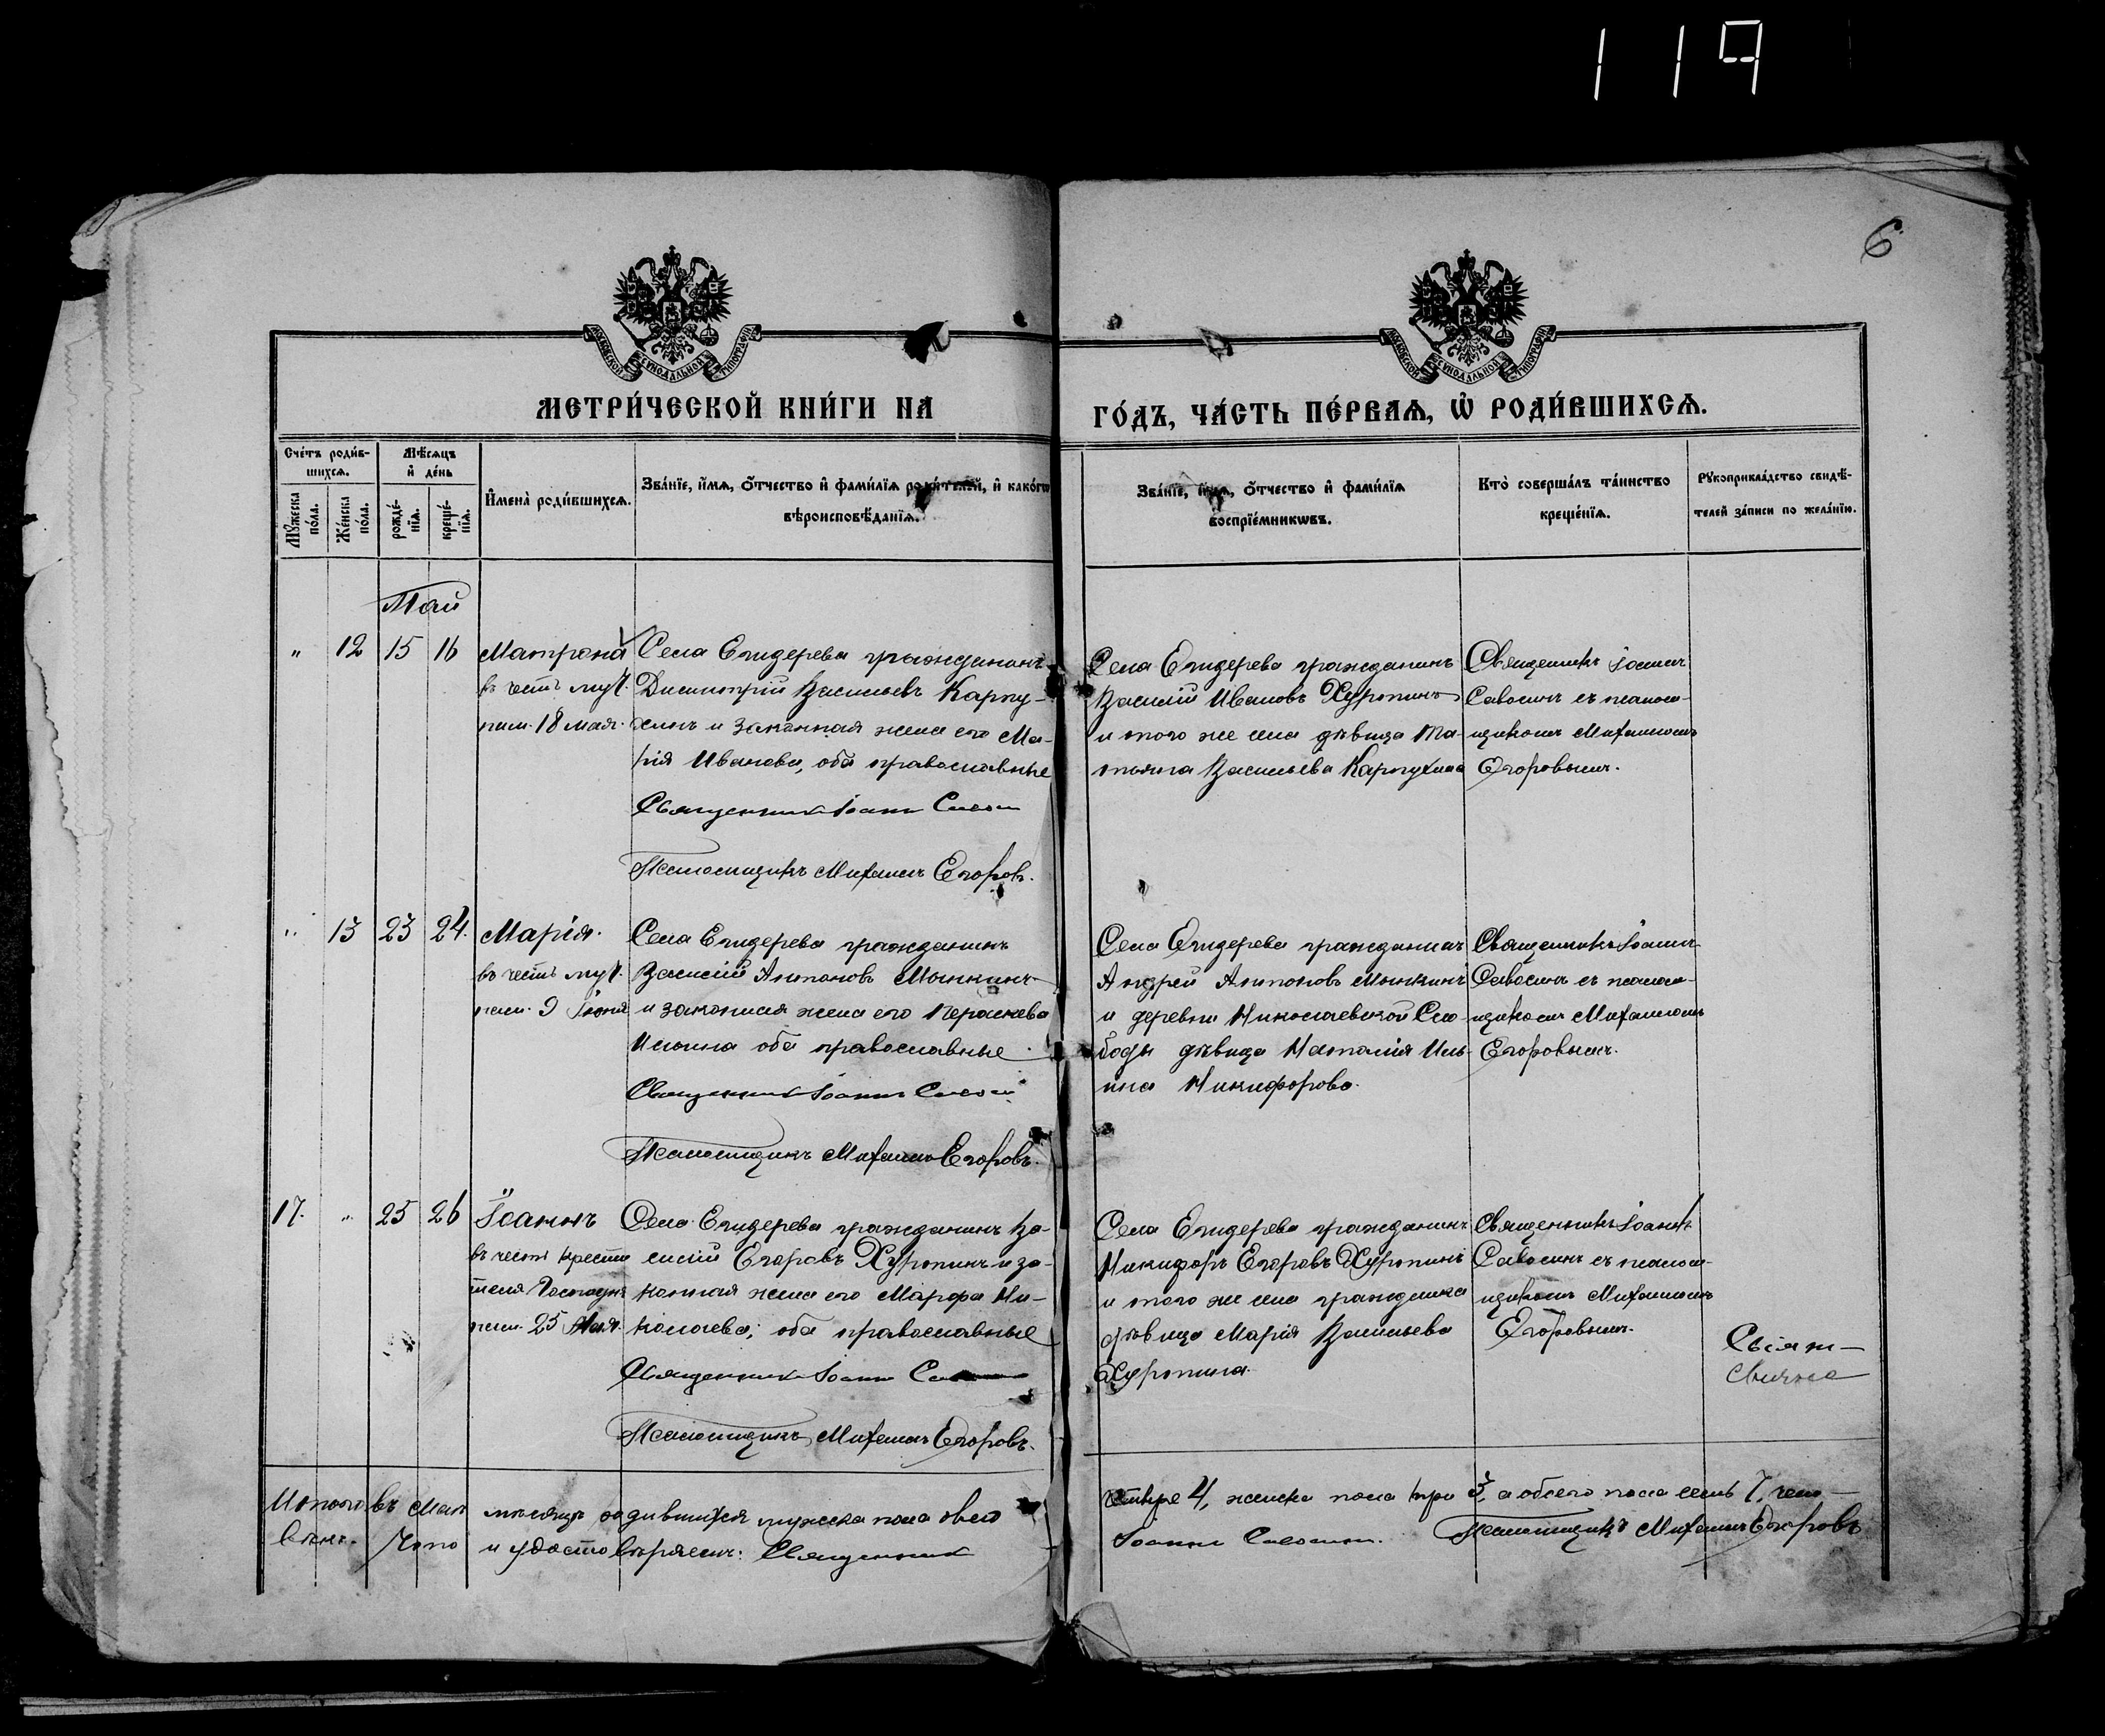 119
6
МОСКОВСКОЙ СѴНОДАЛЬНОЙ ТИПОГРАФІИ
МОСКОВСКОЙ СѴНОДАЛЬНОЙ ТИПОГРАФІИ
МЕТРИ́ЧЕСКОЙ КНИ́ГИ НА
ГО́ДЪ, ЧА́СТЬ ПЕ́РВАѦ, Ѡ҆ РОДИ́ВШИХСѦ.
Сче́тъ роди́в-
шихсѧ.
Мѣ́сѧцъ
и҆ де́нь
Мꙋ́жеска по́ла.
Же́нска по́ла.
рожде́-нїѧ.
креще́-нїѧ.
И҆мена̀ роди́вшихсѧ.
Зва́нїе, и҆́мѧ, ѻ҆́тчество и҆ фами́лїѧ роди́телей, и҆ како́гѡ
вѣроисповѣ́данїѧ.
Зва́нїе, и҆́мѧ, ѻ҆́тчество и҆ фами́лїѧ
воспрїе́мникѡвъ.
Кто̀ соверша́лъ та́инство
креще́нїѧ.
Рꙋкоприкла́дство свидѣ́-
телей за́писи по жела́нїю.
Май
" 12 15 16
Матрона
въ честь муч.
пам. 18 мая.
Села Егидерева гражданинъ
Димитрій Васильевъ Карпу-
хинъ и законная жена его Ма-
рія Иванова, оба православные
Священникъ Іоаннъ Савосинъ
Псаломщикъ Михаилъ Егоровъ.
Села Егидерева гражданинъ
Василій Ивановъ Хуртинъ
и того же села дѣвица Та-
тьяна Васильева Карпухина
Священникъ Іоаннъ
Савосинъ съ псалом-
щикомъ Михаиломъ
Егоровымъ.
" 13 23 24.
Марія.
въ честь муч.
пам. 9 Іюня
Села Егидерева гражданинъ
Василій Антоновъ Мынкинъ
и законная жена его Параскева
Ильина оба православные
Священникъ Іоаннъ Савосинъ
Псаломщикъ Михаилъ Егоровъ.
Села Егидерева гражданинъ
Андрей Антоновъ Мынкинъ
и деревни Николаевской Сло-
боды дѣвица Наталія Иль-
ина Никифорова.
Священникъ Іоаннъ
Савосинъ съ псалом-
щикомъ Михаиломъ
Егоровымъ.
17. " 25 26
Іоаннъ
въ честь Крести
теля Господня
пам. 25 Мая.
Села Егидерева гражданинъ Ва-
силій Егоровъ Хуртинъ и за-
конная жена его Марфа Ни-
колаева; оба православные
Священникъ Іоаннъ
Псаломщикъ Михаилъ Егоровъ.
Села Егидерева гражданинъ
Никифоръ Егоровъ Хуртинъ
и того же села гражданка
дѣвица Марія Васильева
Хуртина.
Священникъ Іоаннъ
Савосинъ съ псалом-
щикомъ Михаиломъ
Егоровымъ.
Итого въ Маѣ мѣсяцѣ родившихся мужска пола
четыре 4, женска пола три 3, а обоего пола семь 7, чело-
вѣкъ. Что и удостовѣряемъ: Священникъ
Іоаннъ Савосинъ. Псаломщикъ Михаилъ Егоровъ